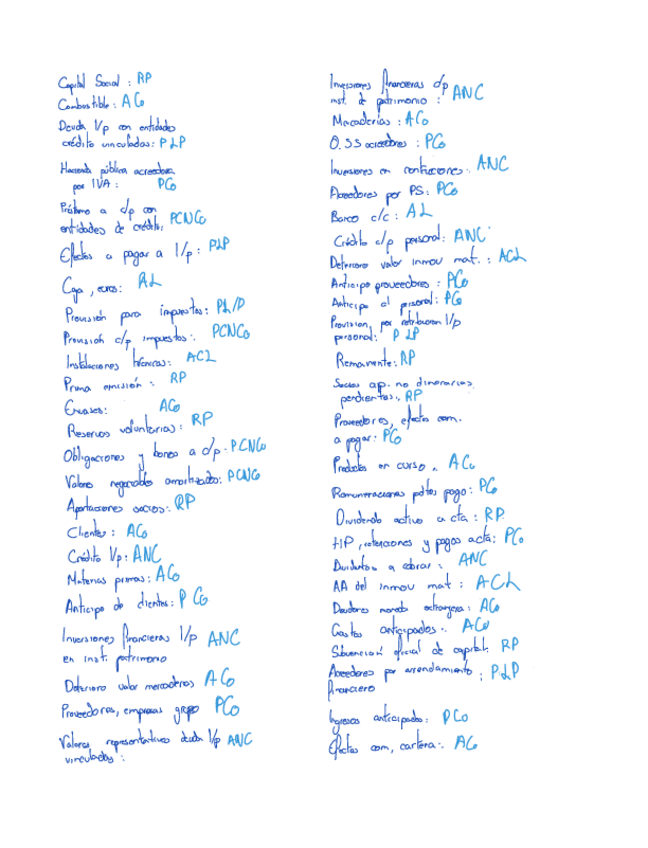 Capital Social : RP
Combustible : ACo
Deuda l/p con entidades
crédito vinculadas: PLP
Hacienda pública acreedora
por IVA : PCo
Préstamo a c/p con
entidades de crédito: PCNCo
Efectos a pagar a l/p : PLP
Caja, euros: AL
Provisión para impuestos: PL/P
Provisión c/p impuestos: PCNCo
Instalaciones técnicas: ACL
Prima emisión : RP
Envases: ACo
Reservas voluntarias : RP
Obligaciones y bonos a c/p: PCNCo
Valores negociables amortizados: PCNCo
Aportaciones socios: RP
Clientes : ACo
Crédito l/p: ANC
Materias primas: ACo
Anticipo de clientes: PCo
Inversiones financieras l/p ANC
en inst. patrimonio
Deterioro valor mercaderías ACo
Proveedores, empresas grupo PCo
Valores representativos deuda l/p ANC
vinculadas :
Inversiones financieras c/p
inst. de patrimonio : ANC
Mercaderías : ACo
O.SS acreedores : PCo
Inversiones en : ANC
Acreedores por PS: PCo
Banco c/c : AL
Crédito c/p personal: ANC
Deterioro valor inmov mat. : ACL
Anticipo proveedores : PCo
Anticipo al personal: PCo
Provision por retribucion l/p
personal: PLP
Remanente: RP
Socios ap. no dinerarias
pendientes: RP
Proveedores, efectos com.
a pagar: PCo
Productos en curso : ACo
Remuneraciones pdtes pago: PCo
Dividendo activo a cta : RP
HP, retenciones y pagos acta: PCo
Dividendos a cobrar : ANC
AA del inmov mat : ACL
Deudores moneda extranjera: ACo
Gastos anticipados : ACo
Subvención oficial de capital: RP
Acreedores por arrendamiento : PLP
financiero
Ingresos anticipados: PCo
Efectos com, cartera: ACo